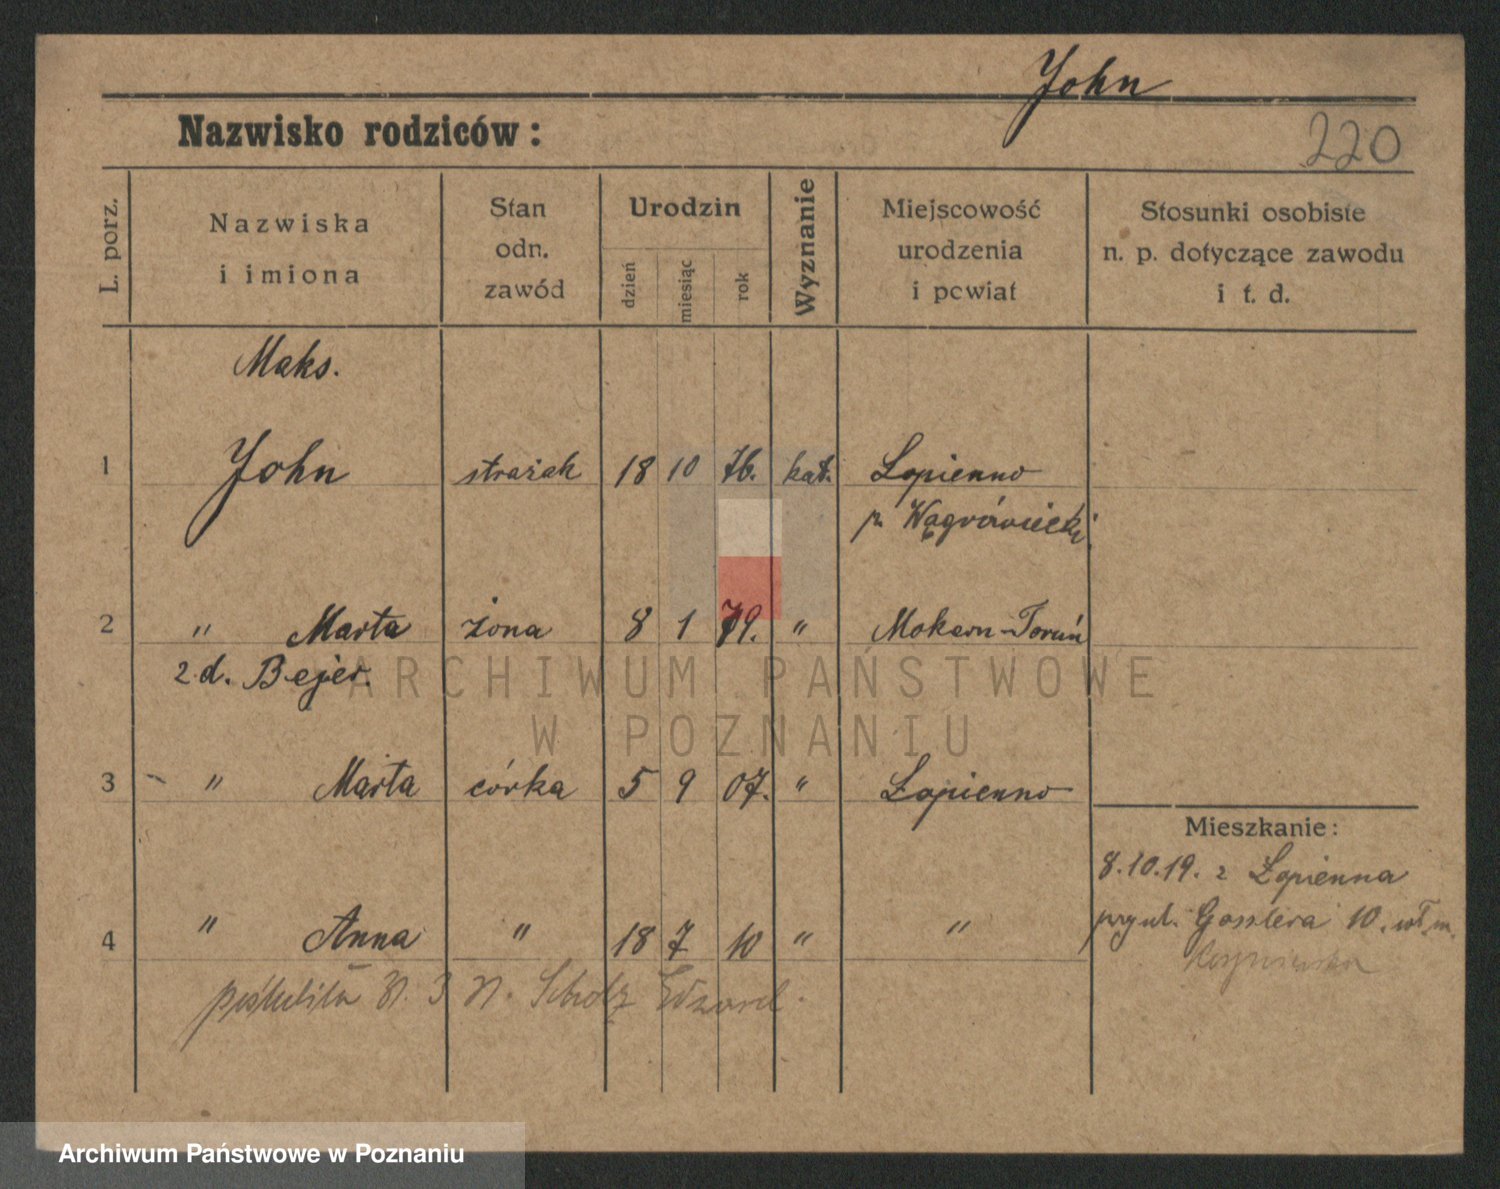 John
Nazwisko rodziców:
220
L. porz.
Nazwiska
i imiona
Stan
odn.
zawód
Urodzin
dzień
miesiąc
rok
Wyznanie
Miejscowość
urodzenia
i powiat
Stosunki osobiste
n. p. dotyczące zawodu
i t. d.
Maks.
1 John strażak 18 10 76. kat. Łopienno
p. Wągrówiecki
2 " Marta żona 8 1 79. " Mokern-Toruń
z d. Bejer.
ARCHIWUM PAŃSTWOWE
W POZNANIU
3 " Marta córka 5 9 07. " Łopienno
Mieszkanie:
8.10.19. z Łopienna
przyul. Gosslera 10.
4 " Anna " 18 7 10 " "
N. 3 N. Scholz Edward.
Archiwum Państwowe w Poznaniu